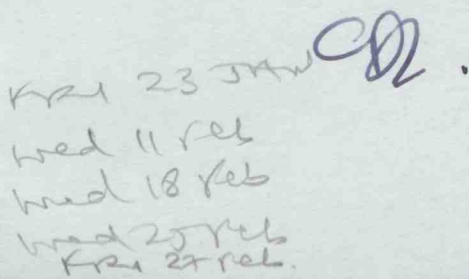 FRI 23 JAN
wed 11 Feb
wed 18 Feb
wed 25 Feb
FRI 27 Feb.